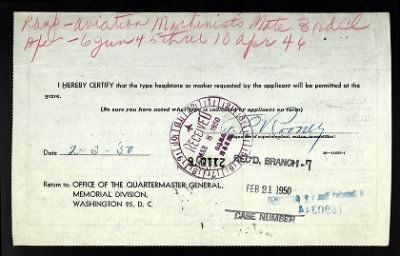 Rank - aviation Machinists Mate 3rd Cl
- 6 Jun 45 thru 10 Apr 46
I HEREBY CERTIFY that the type headstone or marker requested by the applicant will be permitted at the
grave.
(Be sure you have noted what is indicated by applicant on form)
Rooney
RECEIVED
MAR 8 1950
Date 2-3-50
REC'D, BRANCH-7
Return to: OFFICE OF THE QUARTERMASTER GENERAL,
MEMORIAL DIVISION,
WASHINGTON 25, D. C.
FEB 21 1950
CASE NUMBER